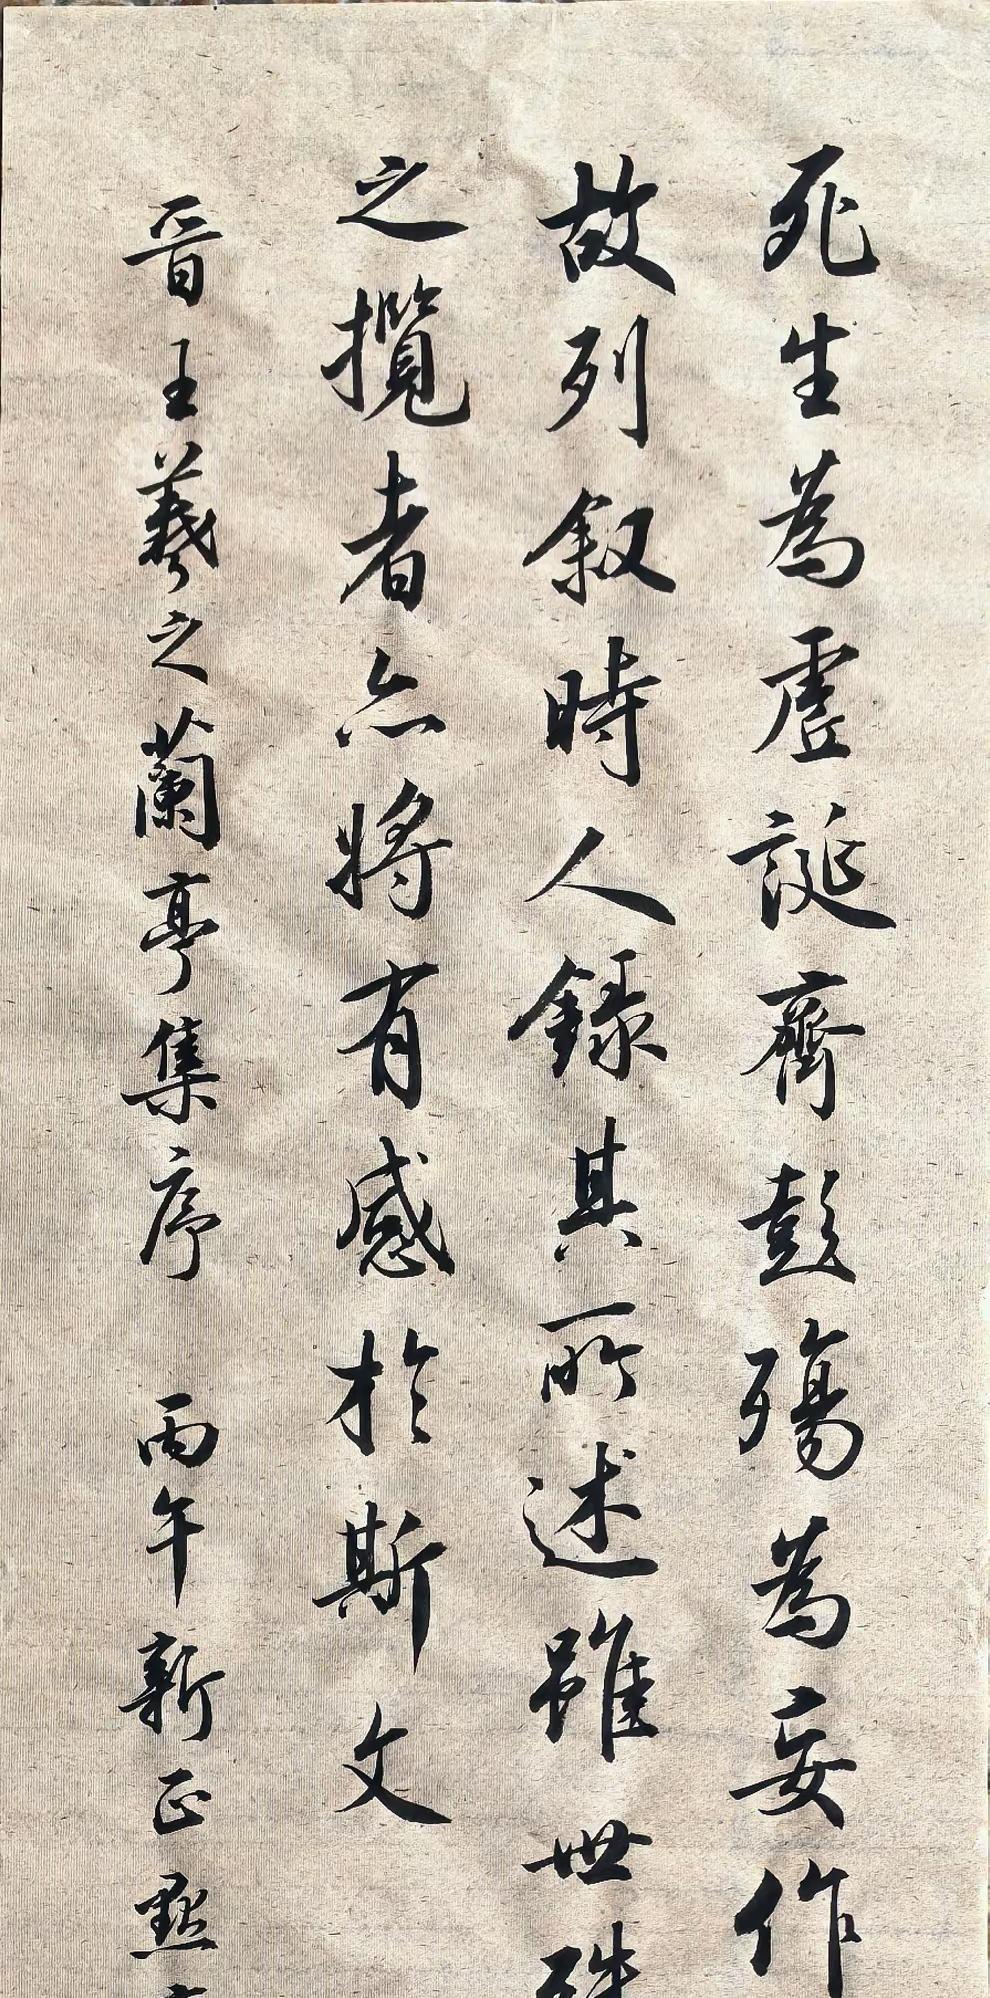 死生為虛誕齊彭殤為妄作
故列叙時人錄其所述雖世殊
之攬者亦將有感於斯文
晉王羲之蘭亭集序 丙午新正